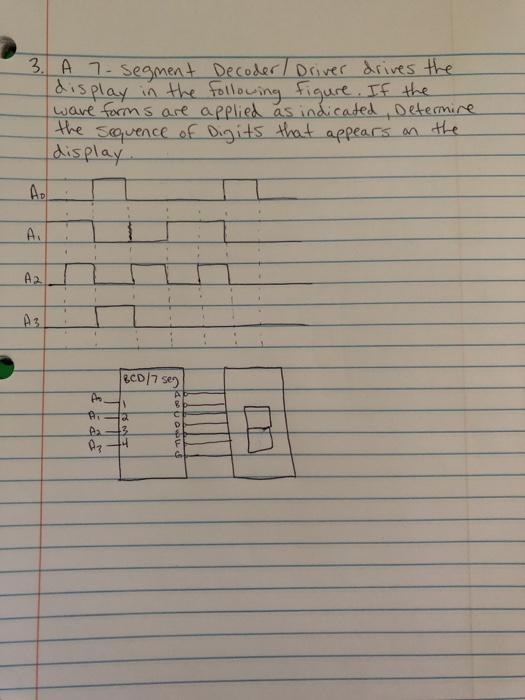 3. A 7-segment Decoder/Driver drives the
display in the following figure. If the
wave forms are applied as indicated, Determine
the sequence of Digits that appears on the
display.
A0
A1
A2
A3
BCD/7 seg
A0 1 A
A1 2 B
A2 3 C
A3 4 D
E
F
G